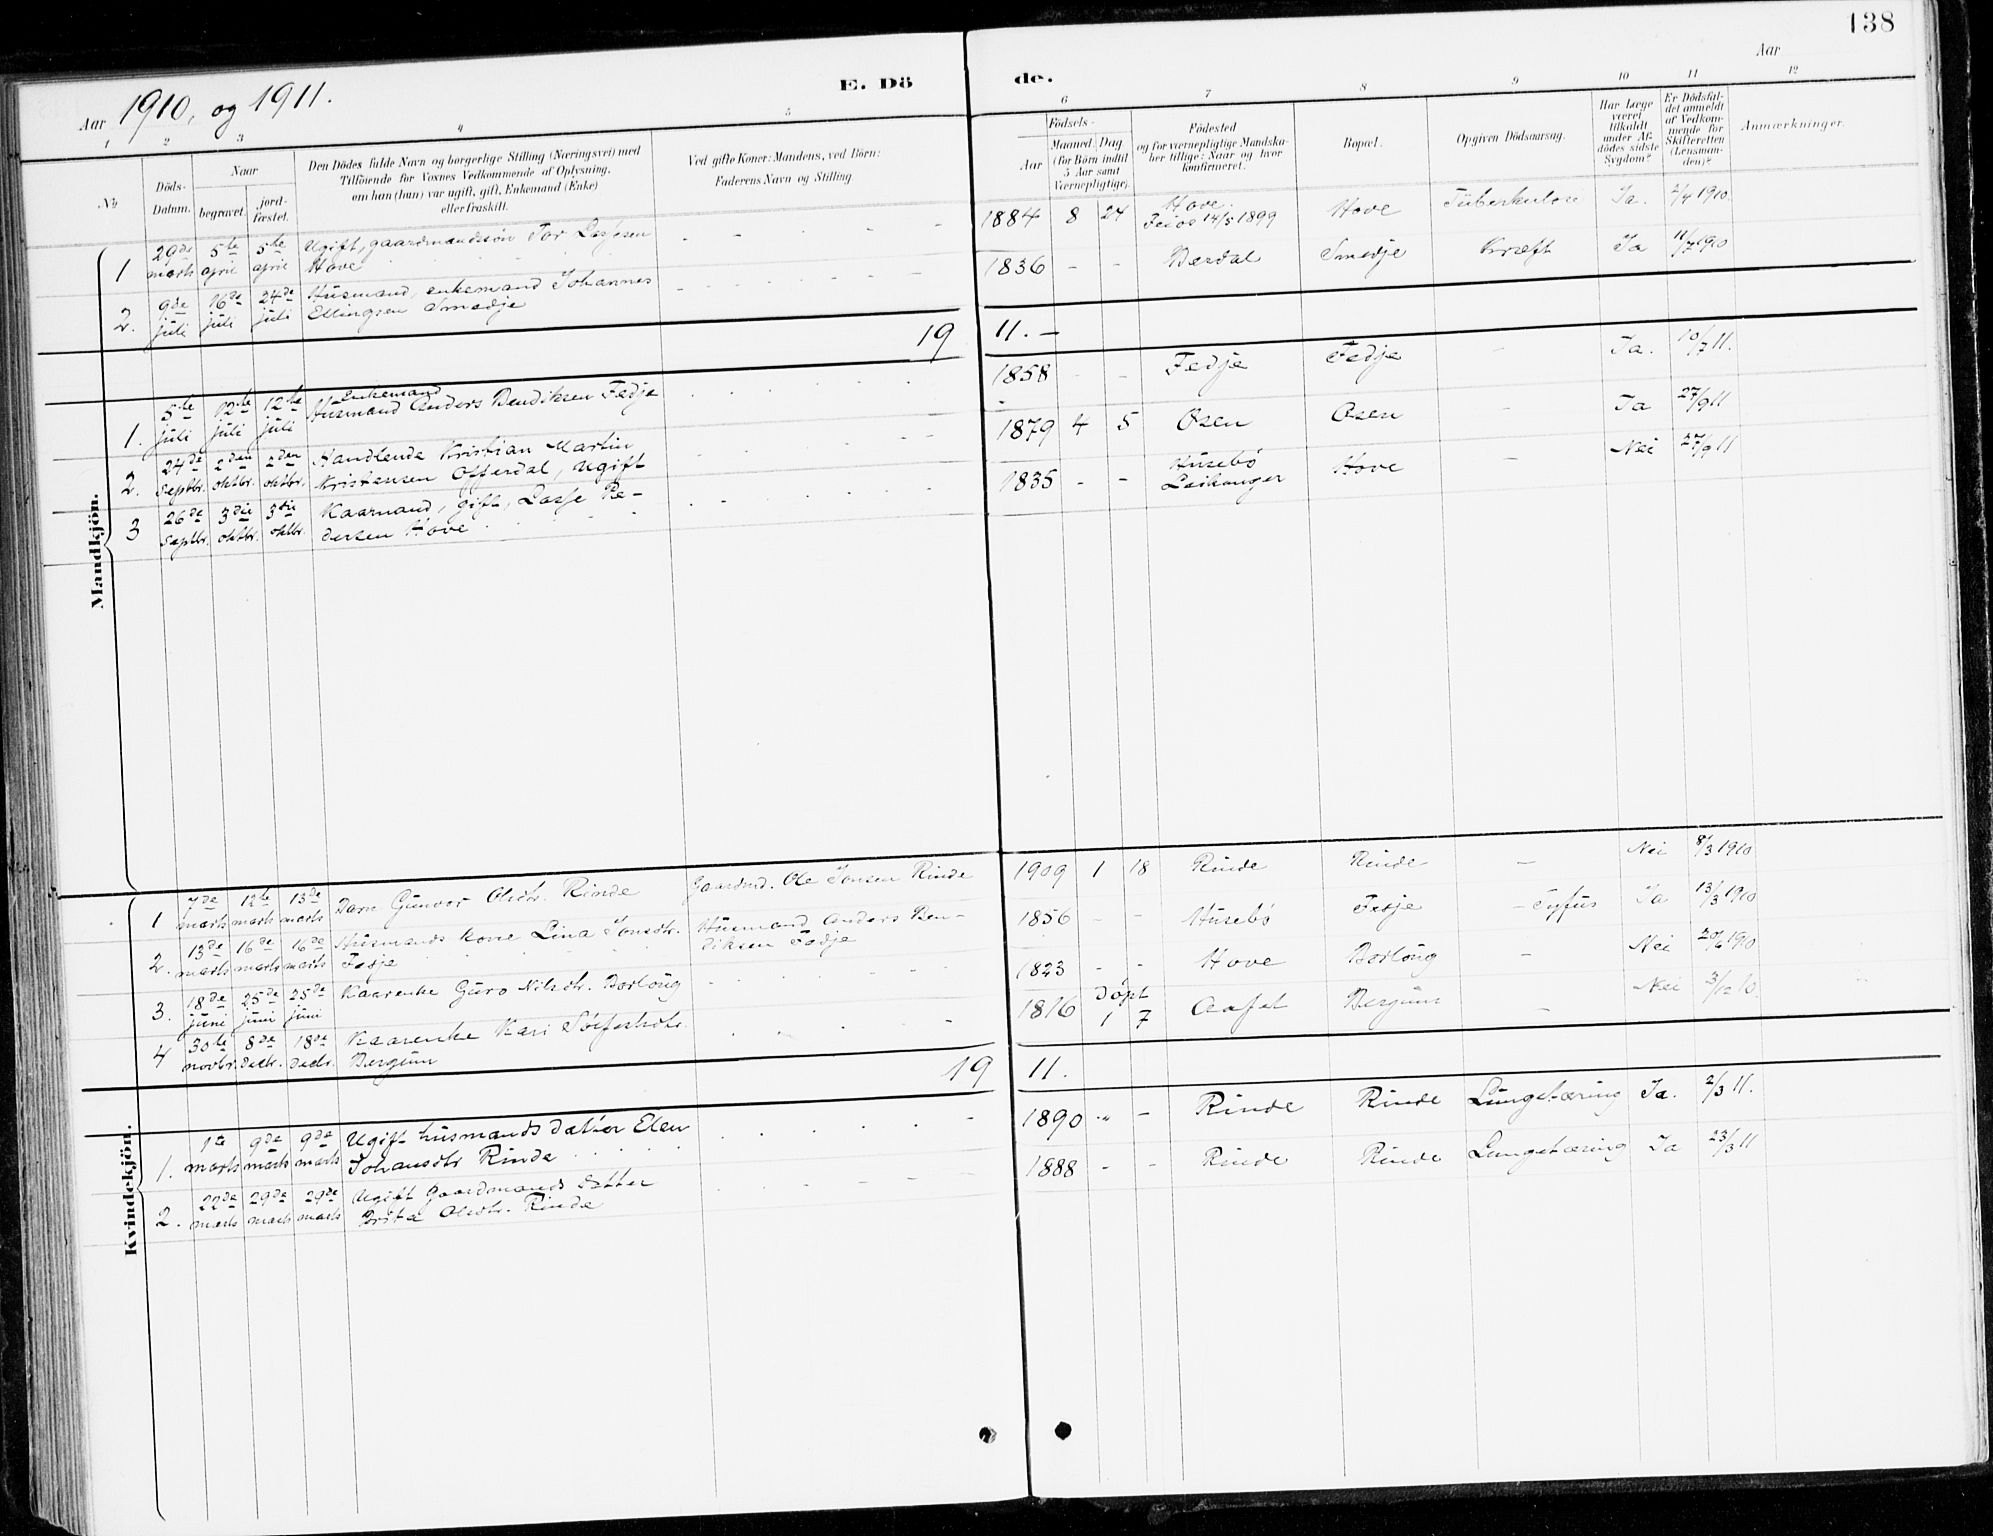 138
Aar 1910, og 1911.
E. Dö
de.
Aar
1 2 3 4 5 6 7 8 9 10 11 12
No
Döds-
Datum.
Naar
begravet.
jord-
fæstet.
Den Dödes fulde Navn og borgerlige Stilling (Næringsvei) med
Tilföiende for Voxnes Vedkommende af Oplysning,
om han (hun) var ugift, gift, Enkemand (Enke)
eller fraskilt.
Ved gifte Koner: Mandens, ved Börn:
Faderens Navn og Stilling
Födsels-
Aar
Maaned. Dag
(for Börn indtil
5 Aar samt
Værnepligtige).
Födested
og for værnepligtige Mandska-
ber tillige: Naar og hvor
konfirmeret.
Bopæl.
Opgiven Dödsaarsag.
Har Læge
været
tilkaldt
under Af-
dödes sidste
Sygdom?
Er Dödsfal-
det anmeldt
af Vedkom-
mende for
Skifteretten
(Lensman-
den)?
Anmærkninger.
Mandkjön.
1 29de marts 5te april 5te april Ugift, gaardmandssön Tor Lassesen
Hove
1884 8 24 Hove.
Feios 14/5 1899 Hove Tuberkulose Ja. 2/4 1910.
2. 9de juli 16de juli 24de juli Husmand, enkemand Johannes
Ellingsen Smedje
1836 - - Bærdal Smedje Kræft Ja 11/7 1910
19 11. -
1. 5te juli 12te juli 12te juli Enkemand
Husmand Anders Bendiksen Fedje
1858 - - Fedje Fedje - Ja. 10/7 11.
2. 24de septbr. 2den oktbr. 2den oktbr. Handlende Kristian Martin
Kristensen Offerdal, Ugift
1879 4 5 Osen Osen - Ja 27/9 11
3 26de septbr. 3die oktbr. 3die oktbr. Kaarmand, gift, Lasse Pe-
dersen Hove
1835 - - Husebö
Leikanger Hove - Nei 27/9 11
Kvindekjön.
1 7de marts 12te marts 13de marts Barn Gunvor Olsdtr. Rinde Gaardmd. Ole Jonsen Rinde
1909 1 18 Rinde Rinde - Nei 8/3 1910
2. 13de marts 16de marts 16de marts Husmands kone Lina Jonsdtr.
Fedje
Husmand Anders Ben-
diksen Fedje
1856 - - Husebö Fedje - Tyfus Ja 13/3 1910
3. 18de juni 25de juni 25de juni Kaarenke Guro Nilsdtr. Borlöug
1823 - - Hove Borlöug - Nei 20/6 1910
4 30te novbr. 8de decbr. 18de decbr. Kaarenke Kari
Bergum
1816 Döpt
1 7 Aafet Bergum - Nei 3/12 10.
19 11.
1. 1te marts 9de marts 9de marts Ugift husmands datter Elen
Johansdtr Rinde
1890 " - Rinde Rinde Lungetæring Ja. 2/3 11.
2. 22de marts 29de marts 29de marts Ugift Gaardmands datter
Brita Olsdtr. Rinde
1888 - - Rinde Rinde Lungetæring Ja 23/3 11